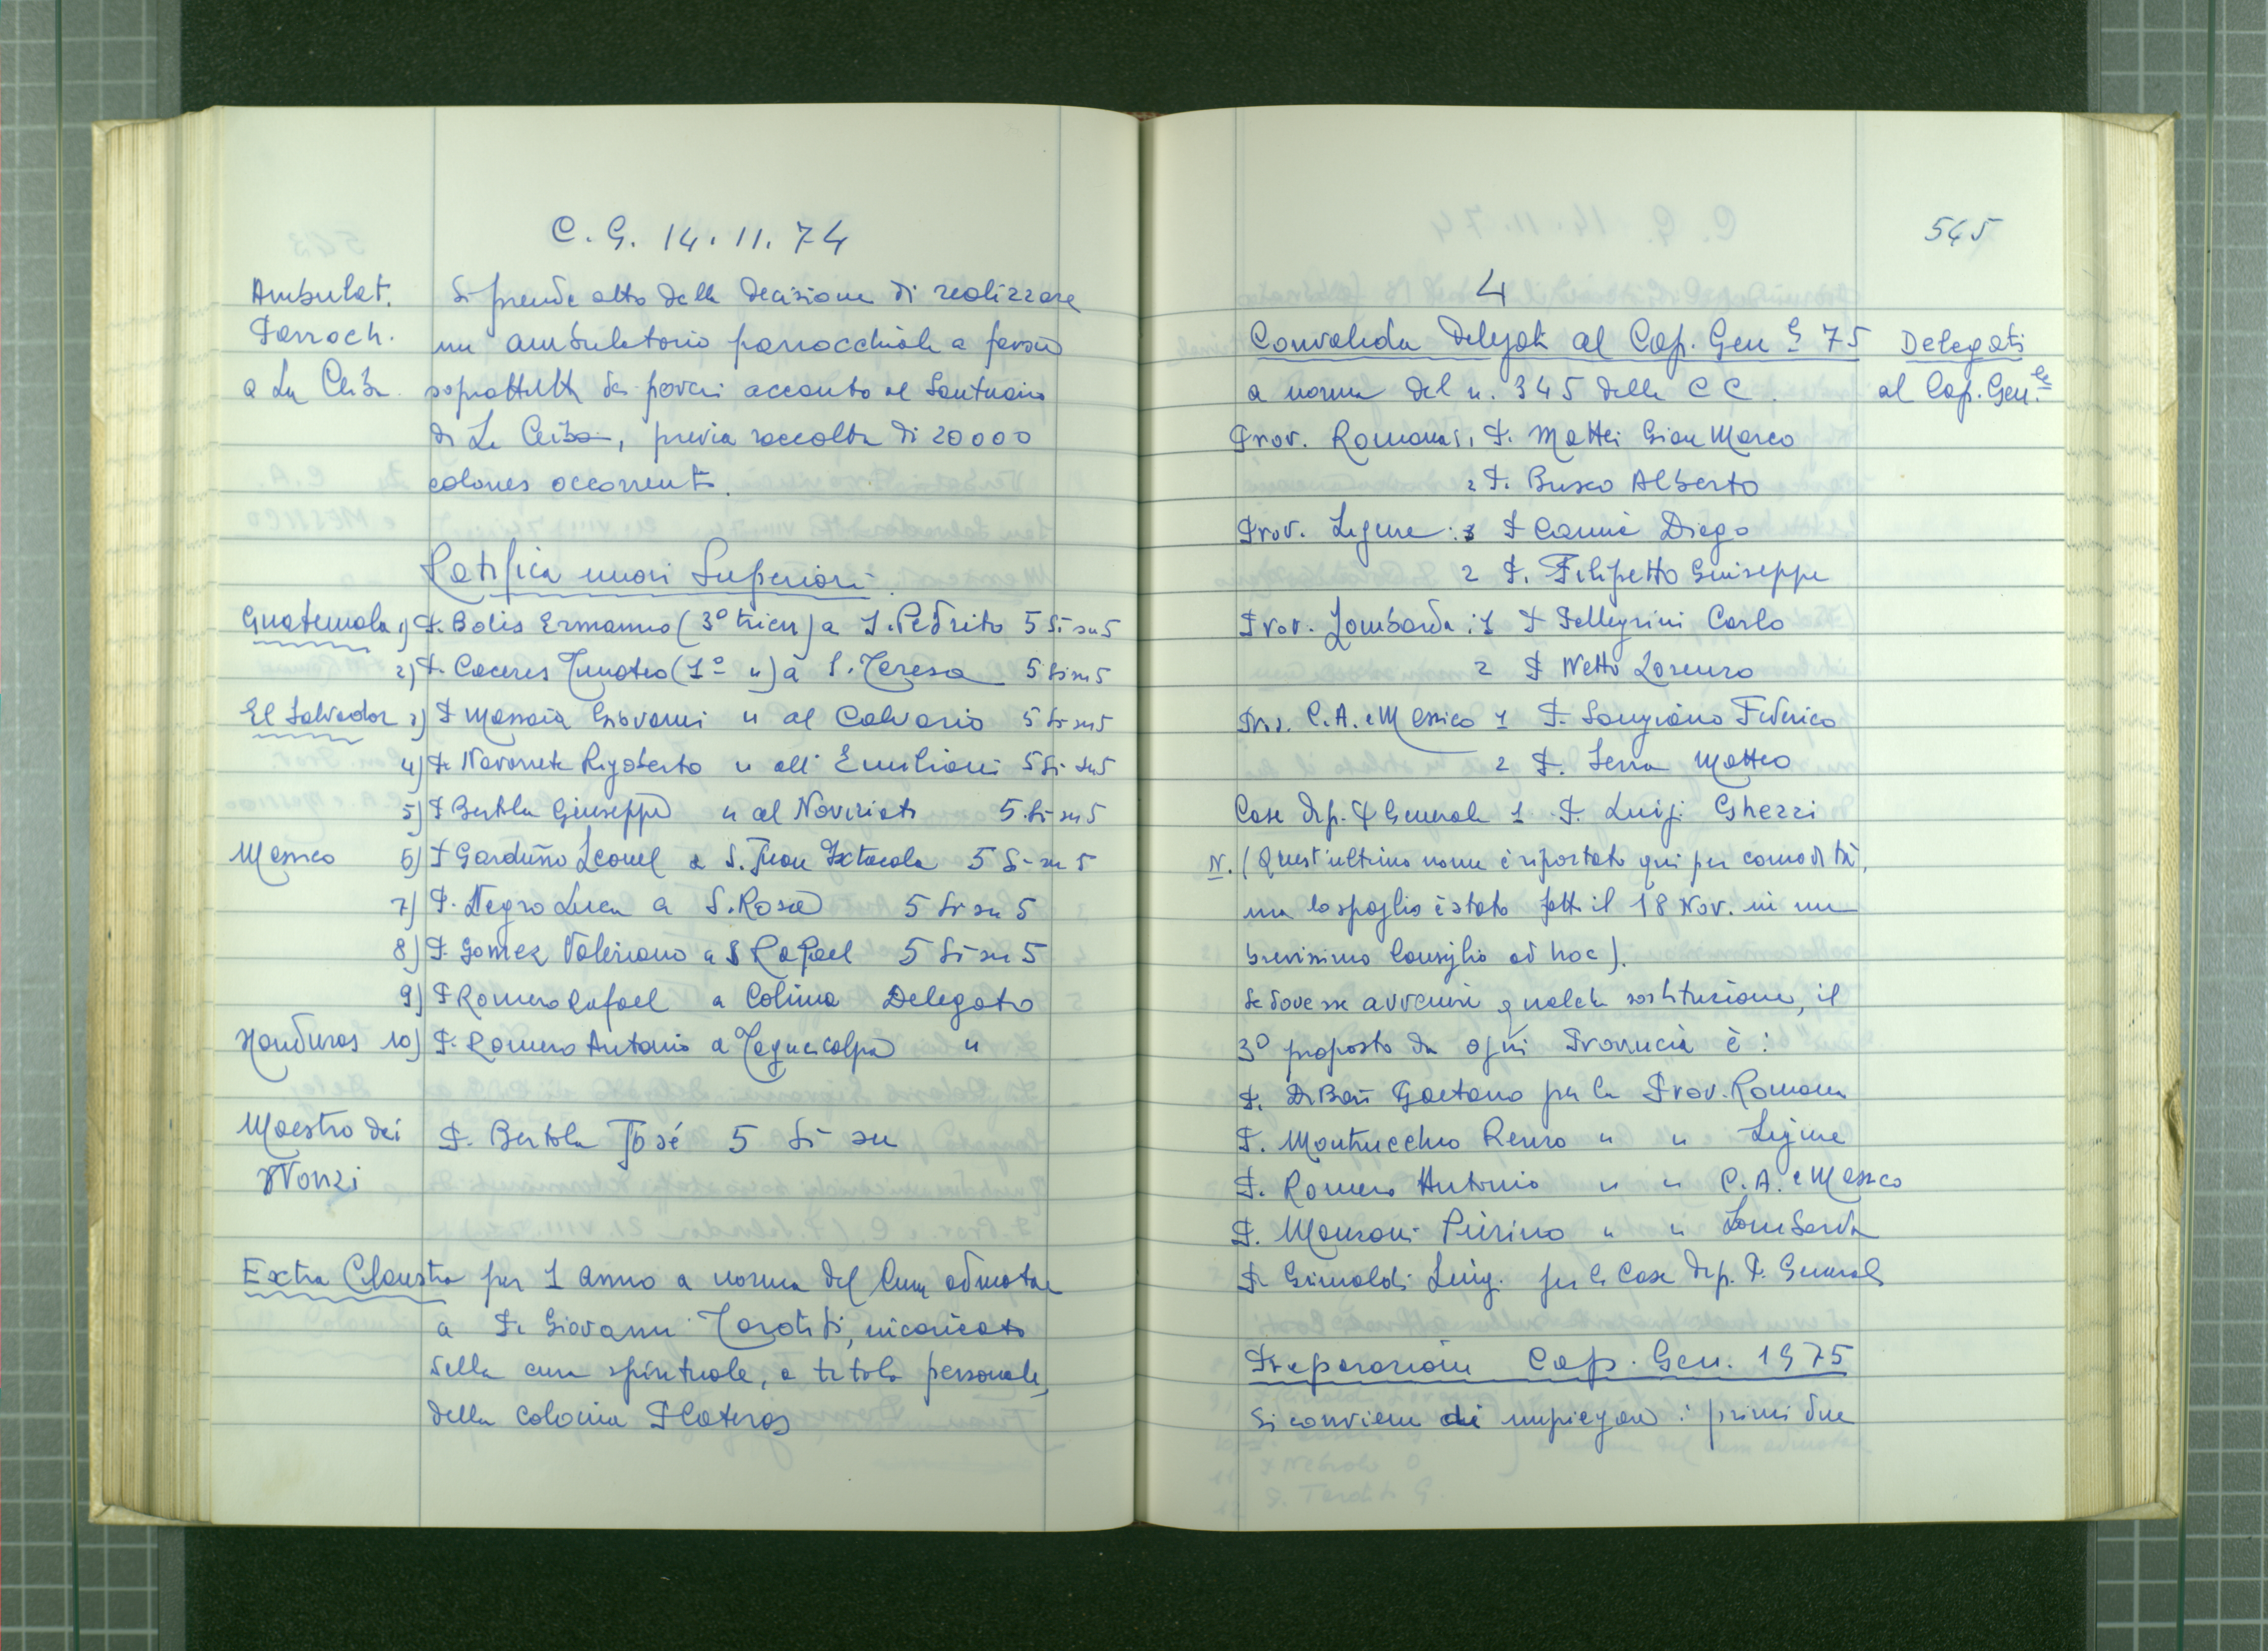 C.G. 14.11.74
Ambulat.
Parroch.
a La Ceiba.
Si prende atto della decisione di realizzare
un ambulatorio parrocchiale a favore
soprattutto dei poveri accanto al Santuario
di La Ceiba, previa raccolta di 20000
colones occorrenti.
Ratifica nuovi Superiori
Guatemala 1) P. Bolis Ermanno (3° trien) a S. Pedrito 5 Si su 5
2) P. Caceres Timoteo (1° ") a S. Teresa 5 Si su 5
El Salvador 3) P Massaia Giovanni " al Calvario 5 Si su 5
4) P. Navarrete Rigoberto " all' Emiliani 5 Si su 5
5) P Bertola Giuseppe " al Noviziato 5 Si su 5
Messico 6) P Garduño Leonel a S. Juan Ixtacala 5 Si su 5
7) P. Negro Luca a S. Rosa 5 Si su 5
8) P. Gomez Valeriano a S Rafael 5 Si su 5
9) P Romero Rafael a Colima Delegato
Honduras 10) P. Romero Antonio a Tegucicalpa "
Maestro dei
Novizi
P. Bertola José 5 Si su
Extra Claustra per 1 anno a norma del Cum admotae
a P. Giovanni Tarditi, incaricato
della cura spirituale, a titolo personale,
della colonia Plateros
545
4
Convalida Delegati al Cap. Gen. 75
Delegati
al Cap. Gen.le
a norma del n. 345 delle CC.
Prov. Romana: 1 P. Mattei Gian Marco
2 P. Busco Alberto
Prov. Ligure: 1 P Camia Diego
2 P. Filipetto Giuseppe
Prov. Lombarda: 1 P Pellegrini Carlo
2 P Netto Lorenzo
Prov. C.A. e Messico 1 P. Sangiano Federico
2 P. Serra Matteo
Case dip. P Generale 1 P. Luigi Ghezzi
N. (Quest'ultimo nome è riportato qui per comodità,
ma lo spoglio è stato fatto il 18 Nov. in un
brevissimo Consiglio ad hoc).
Se dovesse avvenire qualche sostituzione, il
3° proposto da ogni Provincia è:
P. Di Bari Gaetano per la Prov. Romana
P. Montrucchio Renzo " " Ligure
P. Romero Antonio " " C.A. e Messico
P. Manzoni Pierino " " Lombarda
P. Grimaldi Luigi per le Case dip. P. Generale
Preparazione Cap. Gen. 1975
Si conviene di impiegare i primi due